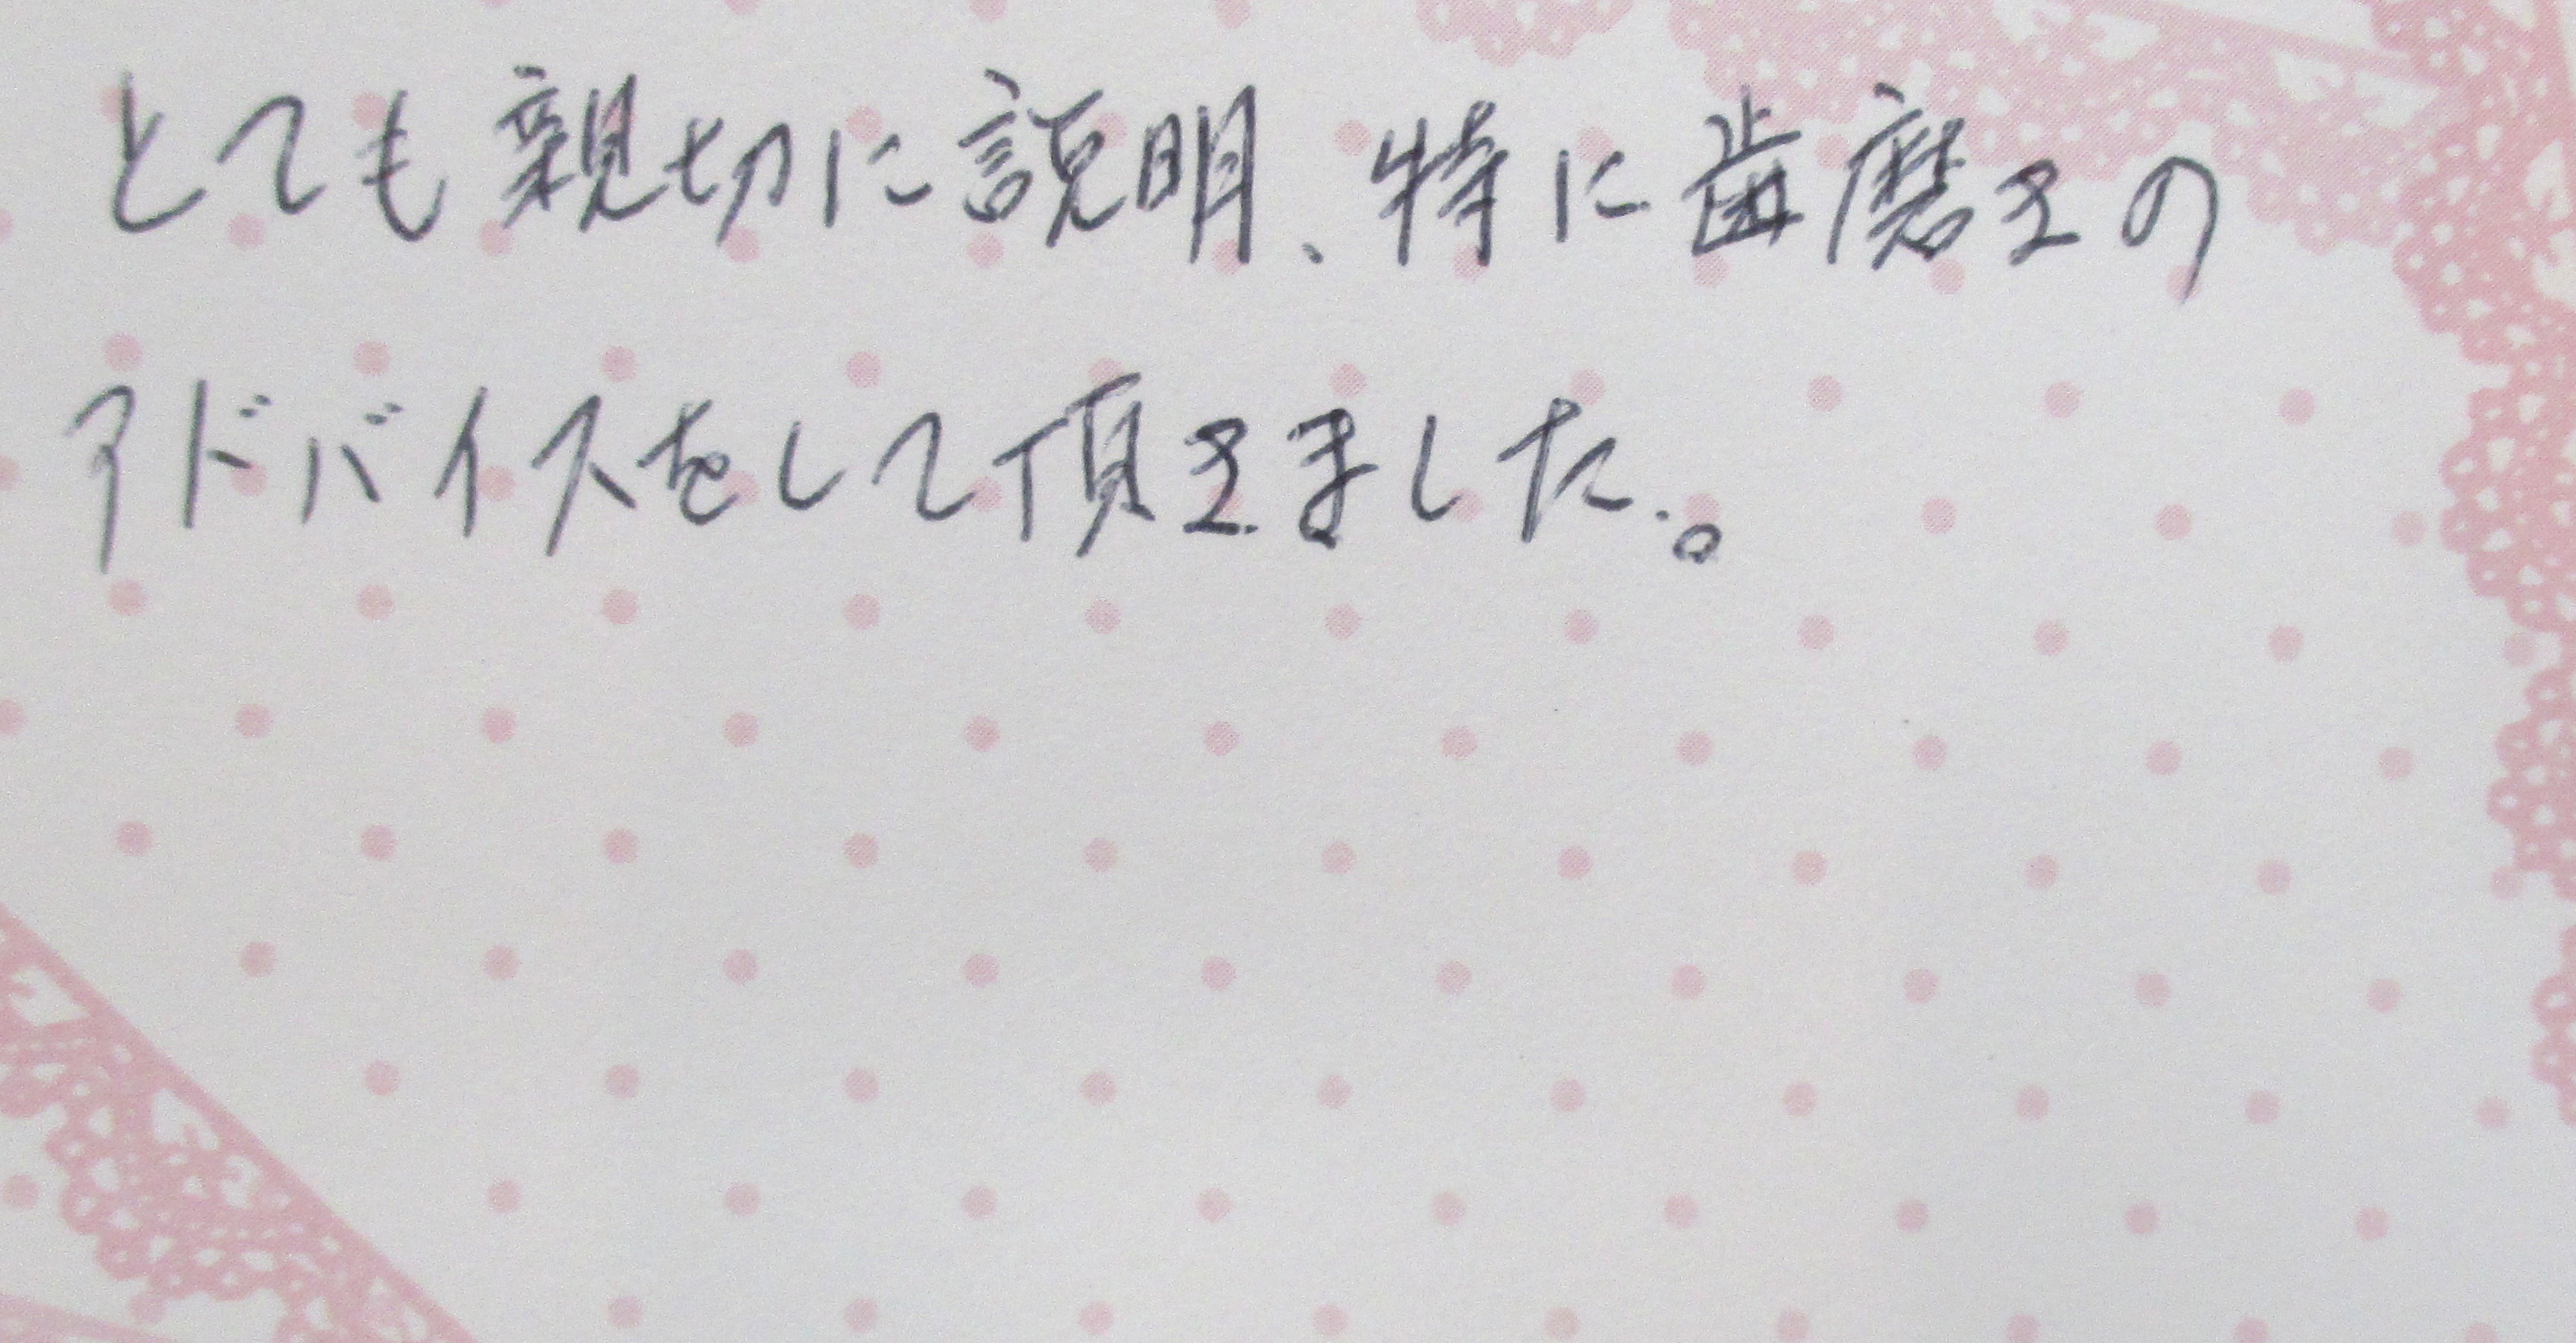 とても親切に説明、特に歯磨きの
アドバイスをして頂きました。